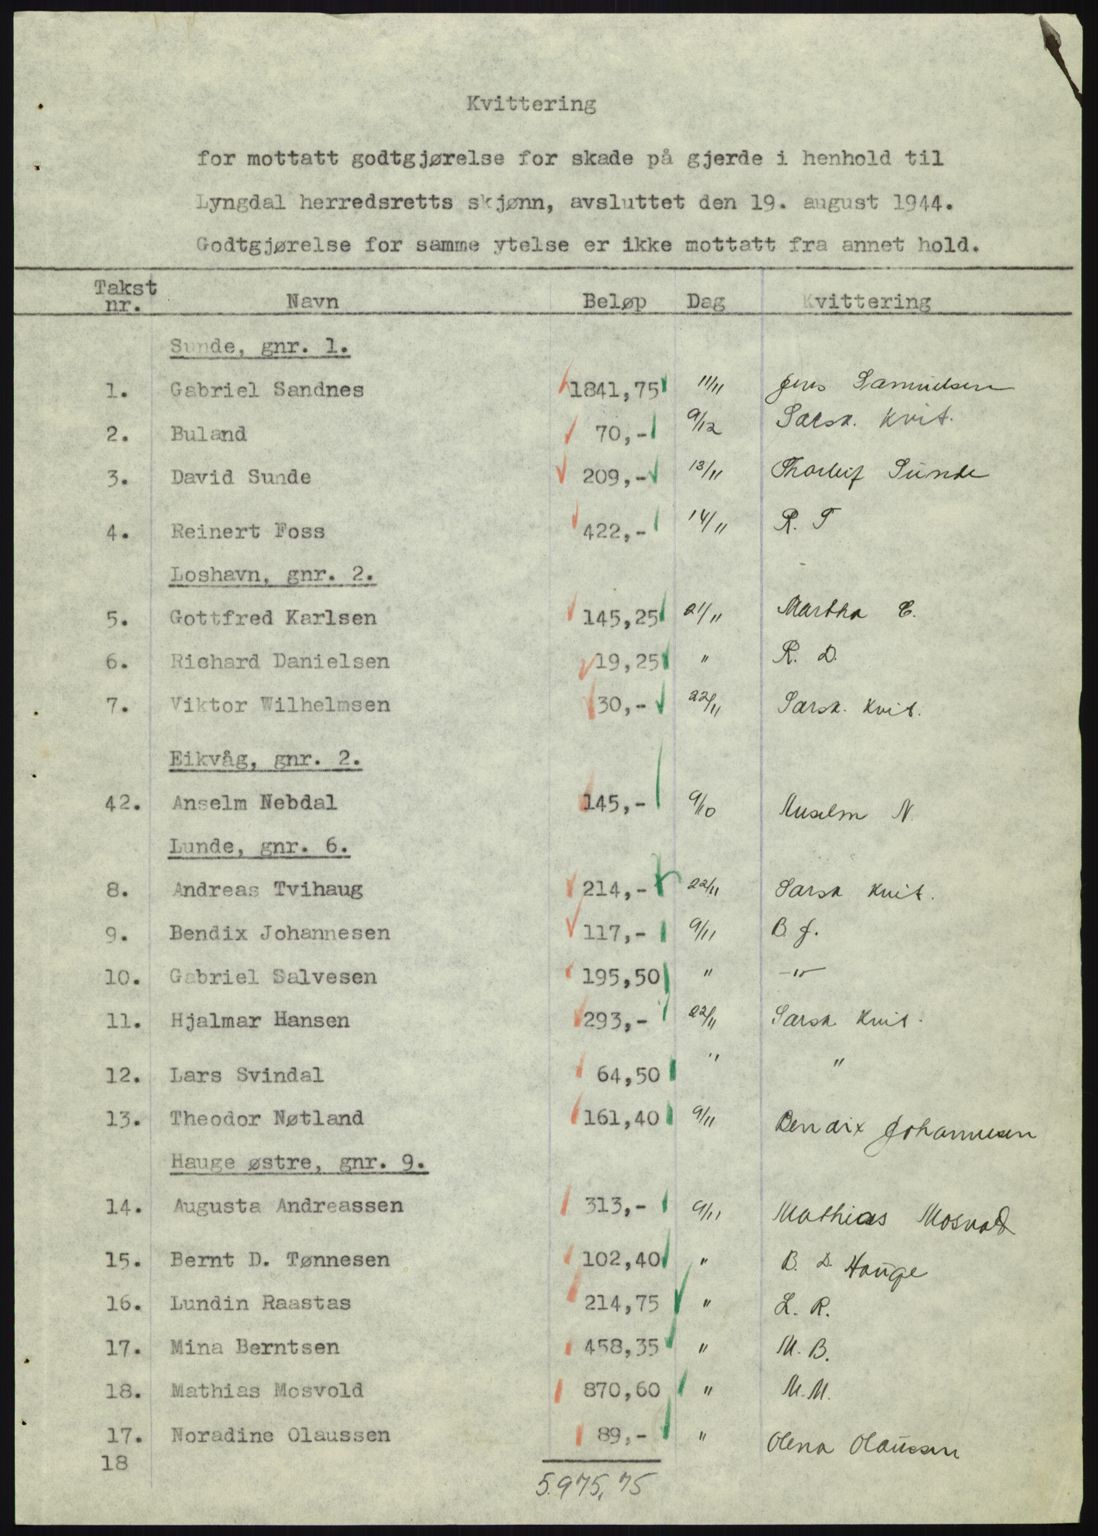 Kvittering
for mottatt godtgjørelse for skade på gjerde i henhold til
Lyngdal herredsretts skjønn, avsluttet den 19. august 1944.
Godtgjørelse for samme ytelse er ikke mottatt fra annet hold.
Takst nr. Navn Beløp Dag Kvittering
Sunde, gnr. 1.
1. Gabriel Sandnes 1841,75 11/11 Jens Samuelsen
2. Buland 70,- 9/12 Særsk. Kvit.
3. David Sunde 209,- 13/11 Thorleif Sunde
4. Reinert Foss 422,- 14/11 R. F
Loshavn, gnr. 2.
5. Gottfred Karlsen 145,25 21/11 Martha C.
6. Richard Danielsen 19,25 " R. D.
7. Viktor Wilhelmsen 30,- 22/11 Særsk. Kvit.
Eikvåg, gnr. 2.
42. Anselm Nebdal 145,- 9/10 Anselm N.
Lunde, gnr. 6.
8. Andreas Tvihaug 214,- 22/11 Særsk Kvit.
9. Bendix Johannesen 117,- 9/11 B. J.
10. Gabriel Salvesen 195,50 " -"-
11. Hjalmar Hansen 293,- 22/11 Særsk Kvit.
12. Lars Svindal 64,50 " "
13. Theodor Nøtland 161,40 9/11 Bendix Johannesen
Hauge østre, gnr. 9.
14. Augusta Andreassen 313,- 9/11 Mathias Mosvold
15. Bernt D. Tønnesen 102,40 " B. D. Hauge
16. Lundin Raastas 214,75 " L. R.
17. Mina Berntsen 458,35 " M. B.
18. Mathias Mosvold 870,60 " M. M.
17. Noradine Olaussen 89,- " Olena Olaussen
18
5.975,75